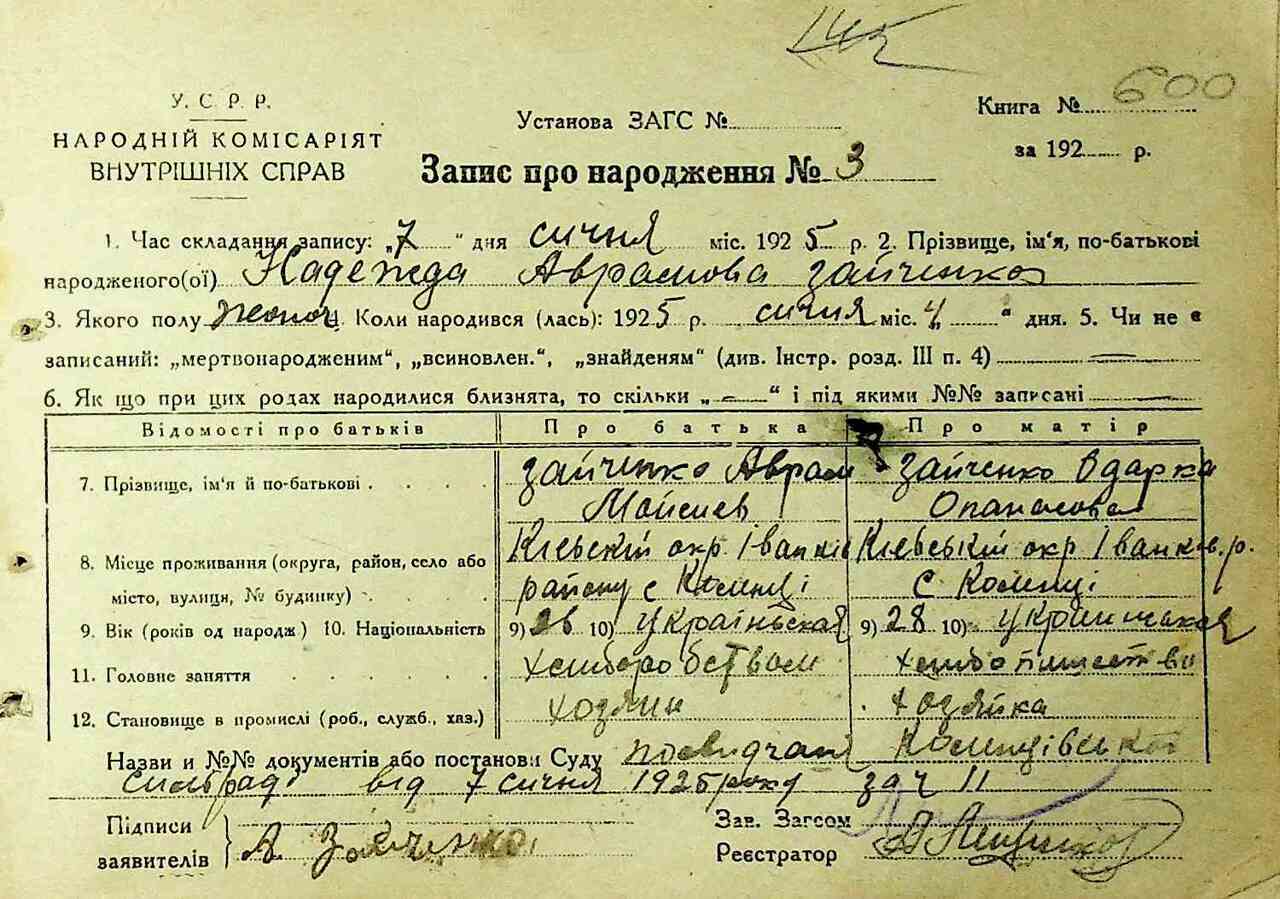 145
600
У. С. Р. Р.
НАРОДНІЙ КОМІСАРІЯТ
ВНУТРІШНІХ СПРАВ
Установа ЗАГС №
Книга №
за 192 р.
Запис про народження № 3
1. Час складання запису: „7 “ дня січня міс. 1925 р. 2. Прізвище, ім'я, по-батькові
народженого(ої) Надежда Аврамова Зайченко
3. Якого полу жіноч 4. Коли народився (лась): 1925 р. січня міс. „4 “ дня. 5. Чи не є
записаний: „мертвонародженим“, „всиновлен.“, „знайденям“ (див. Інстр. розд. III п. 4) —
6. Як що при цих родах народилися близнята, то скільки „ — “ і під якими №№ записані —
Відомості про батьків Про батька Про матір
7. Прізвище, ім'я й по-батькові . . . . Зайченко Аврам Зайченко Одарка
Мойсиев Опанасова
8. Місце проживання (округа, район, село або Кіевскій окр. Іванків Кіевській окр Іванков. р.
місто, вулиця, № будинку) . . . . . району с с
9. Вік (років од народж) 10. Національність 9) 26 10) Україньская 9) 28 10) Украиньская
11. Головне заняття . . . . . . . .
12. Становище в промислі (роб., служб., хаз.) хозяин хозяйка
Назви и №№ документів або постанови Суду
від 7 січня 1925 року за ч 11
Підписи
заявителів
А Зайченко
Зав. Загсом
Реєстратор